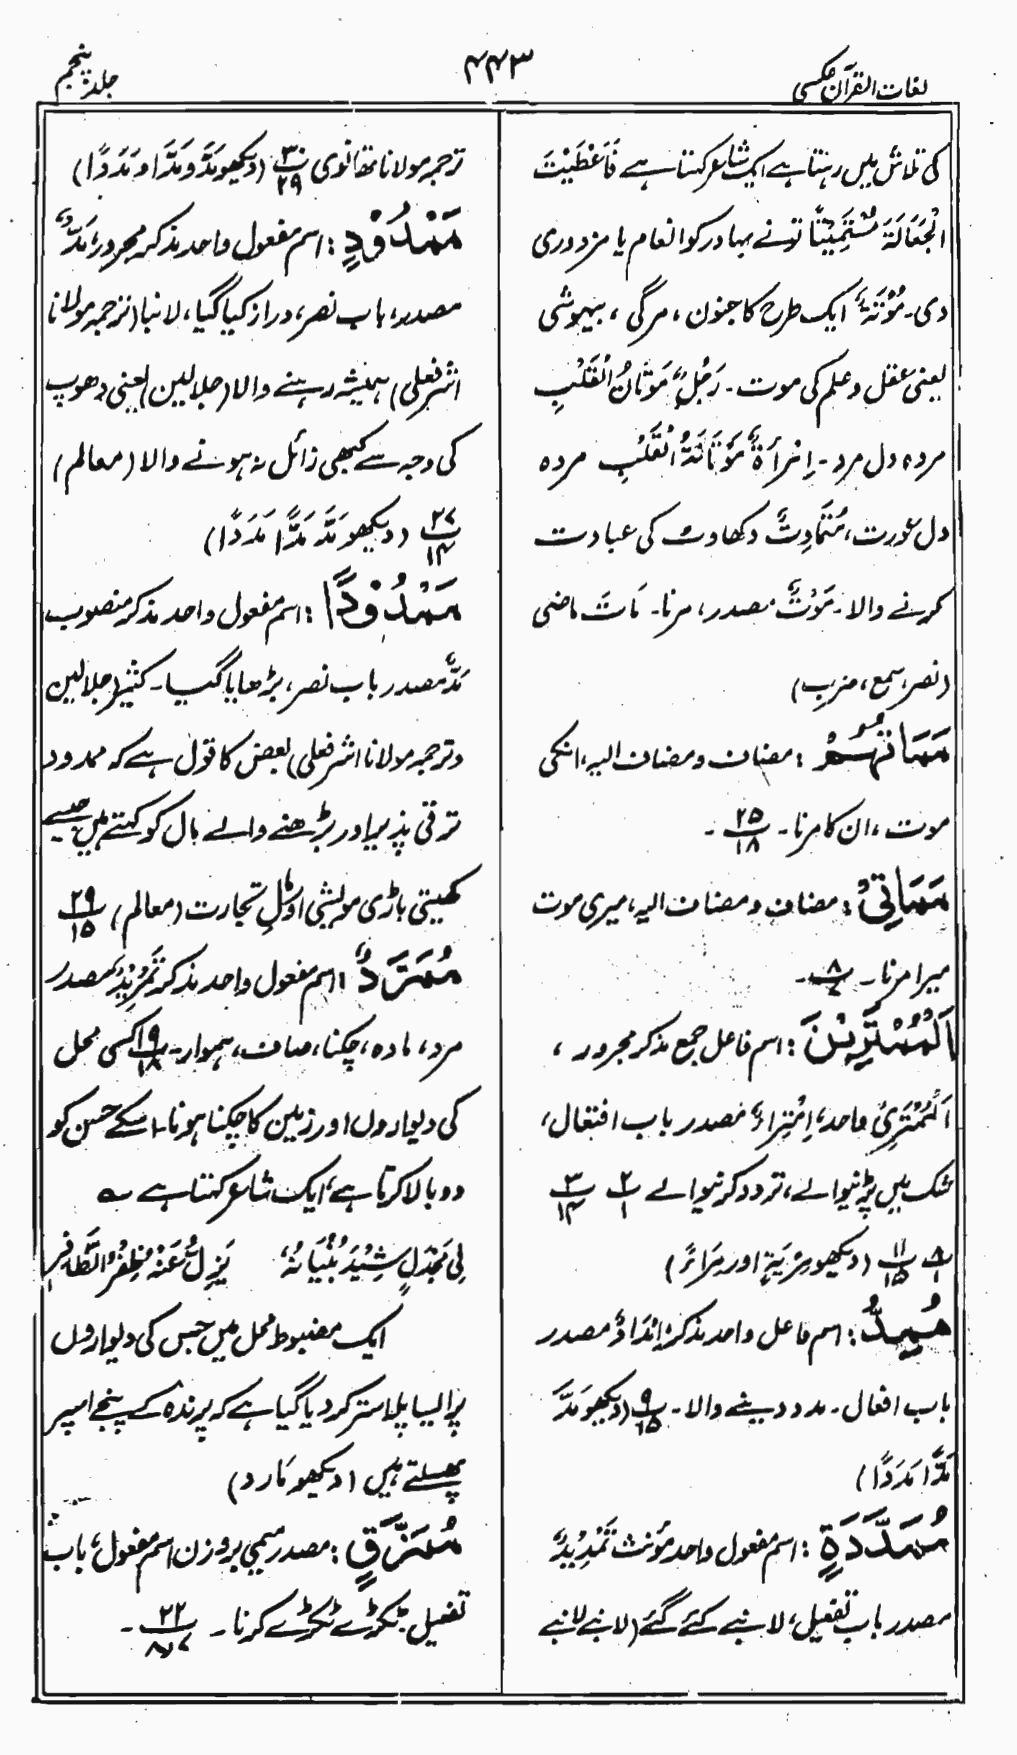 لغات القرآن عکسی
۴۴۳
جلد پنجم
کی تلاش میں رہتا ہے ایک شاعر کہتا ہے فَاَعْطَیْتَ
الْجَعَالَةَ مُسْتَمِيْتًا تو نے بہادر کو انعام یا مزدوری
دی۔ مُؤْتَةٌ ایک طرح کا جنون، مرگی، بیہوشی
یعنی عقل و علم کی موت۔ رَجُلٌ مَوْتَانُ الْقَلْبِ
مردہ دل مرد۔ اِمْرَأَةٌ مَوْتَانَةُ الْقَلْبِ مردہ
دل عورت، مُتَمَاوِتٌ دکھاوٹ کی عبادت
کرنے والا۔ مَوْتٌ مصدر، مرنا۔ مَاتَ ماضی
(نصر، سمع، ضرب)
مَمَاتُهُمْ: مضاف و مضاف الیہ، انکی
موت، ان کا مرنا۔ ۲۵/۱۸ ۔
مَمَاتِیْ: مضاف و مضاف الیہ، میری موت
میرا مرنا۔ ۸/۷ ۔
اَلْمُمْتَرِيْنَ: اسم فاعل جمع مذکر مجرور،
اَلْمُمْتَرِیْ واحد، اِمْتِرَاءٌ مصدر باب افتعال،
شک میں پڑنیوالے، تردد کرنیوالے ۲/۱ ۳/۱۴
۸/۱ ۱۱/۱۵ (دیکھو مِرْيَةٍ اور مِرَاءً)
مُمِدٌّ: اسم فاعل واحد مذکر، اِمْدَادٌ مصدر
باب افعال۔ مدد دینے والا۔ ۹/۱۵ (دیکھو مَدَّ
مَدًّا مَدَدًا)
مُمَدَّدَةٍ: اسم مفعول واحد مؤنث تَمْدِيْدٌ
مصدر باب تفعیل، لانبے کئے گئے (لانبے لانبے
ترجمہ مولانا تھانوی ۳۰/۲۹ (دیکھو مَدَّ و مَدًّا و مَدَدًا)
مَمْدُوْدٍ: اسم مفعول واحد مذکر مجرور، مَدٌّ
مصدر، باب نصر، دراز کیا گیا، لانبا (ترجمہ مولانا
اشرفعلی) ہمیشہ رہنے والا (جلالین) یعنی دھوپ
کی وجہ سے کبھی زائل نہ ہونے والا (معالم)
۲۷/۱۴ (دیکھو مَدَّ مَدًّا مَدَدًا)
مَمْدُوْدًا: اسم مفعول واحد مذکر منصوب
مَدٌّ مصدر باب نصر، بڑھایا گیا۔ کثیر (جلالین
و ترجمہ مولانا اشرفعلی) بعض کا قول ہے کہ ممدود
ترقی پذیر اور بڑھنے والے مال کو کہتے ہیں جیسے
کھیتی باڑی مویشی اور مال تجارت (معالم) ۲۹/۱۵
مُمَرَّدٌ: اسم مفعول واحد مذکر تَمْرِيْدٌ مصدر
مرد، مادہ، چکنا، صاف، ہموار۔ ۱۹/۱۸ کسی محل
کی دیواروں اور زمین کا چکنا ہونا۔ اسکے حسن کو
دوبالا کرتا ہے، ایک شاعر کہتا ہے ؎
فِی مَجْدَلٍ شِيْدَ بُنْيَانُهٗ يَزِلُّ عَنْهُ ظُفُرُ الطَّائِرِ
ایک مضبوط محل میں جس کی دیواروں
پر ایسا پلاستر کر دیا گیا ہے کہ پرندہ کے پنجے اسپر
پھسلتے ہیں (دیکھو مَارد)
مُمَزَّقٍ: مصدر میمی بروزن اسم مفعول، باب
تفعیل، ٹکڑے ٹکڑے کرنا۔ ۲۲/ ۔